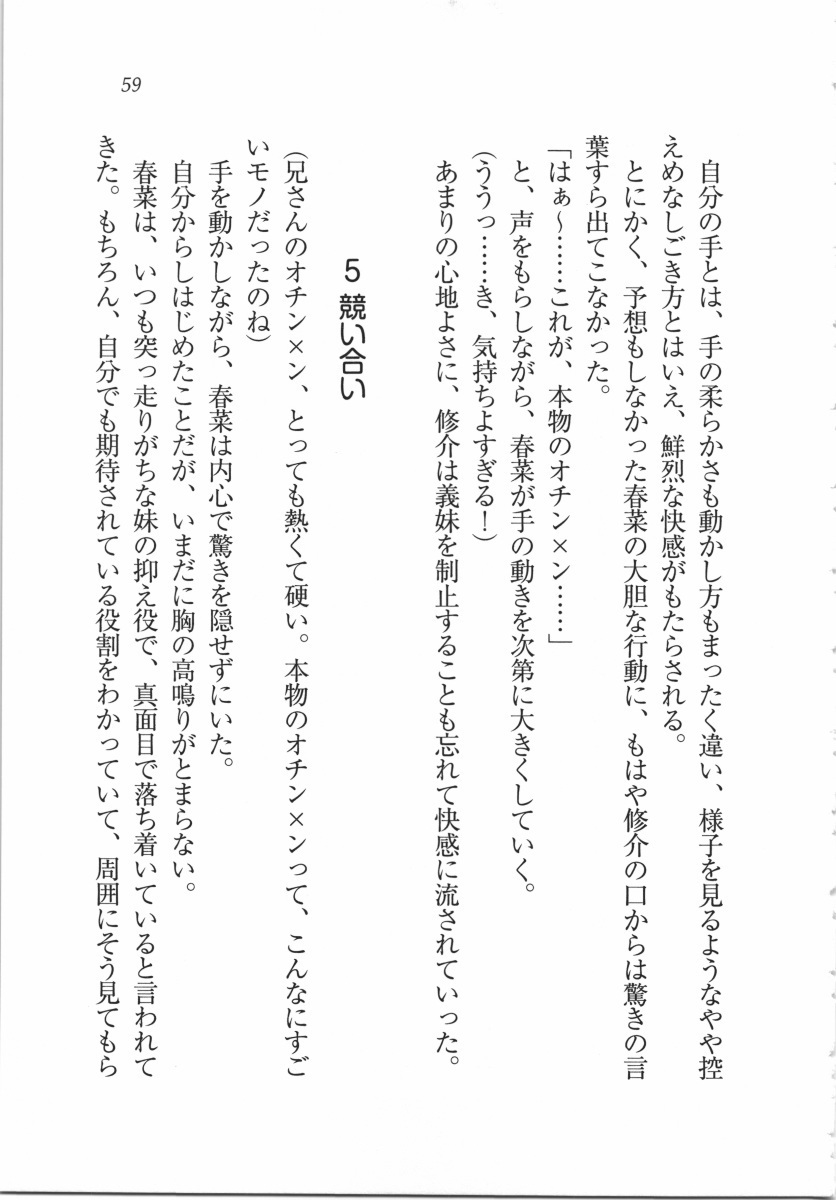 59
自分の手とは、手の柔らかさも動かし方もまったく違い、様子を見るようなやや控
えめなしごき方とはいえ、鮮烈な快感がもたらされる。
とにかく、予想もしなかった春菜の大胆な行動に、もはや修介の口からは驚きの言
葉すら出てこなかった。
「はぁ～……これが、本物のオチン×ン……」
と、声をもらしながら、春菜が手の動きを次第に大きくしていく。
（ううっ……き、気持ちよすぎる！）
あまりの心地よさに、修介は義妹を制止することも忘れて快感に流されていった。
5 競い合い
（兄さんのオチン×ン、とっても熱くて硬い。本物のオチン×ンって、こんなにすご
いモノだったのね）
手を動かしながら、春菜は内心で驚きを隠せずにいた。
自分からしはじめたことだが、いまだに胸の高鳴りがとまらない。
春菜は、いつも突っ走りがちな妹の抑え役で、真面目で落ち着いていると言われて
きた。もちろん、自分でも期待されている役割をわかっていて、周囲にそう見てもら